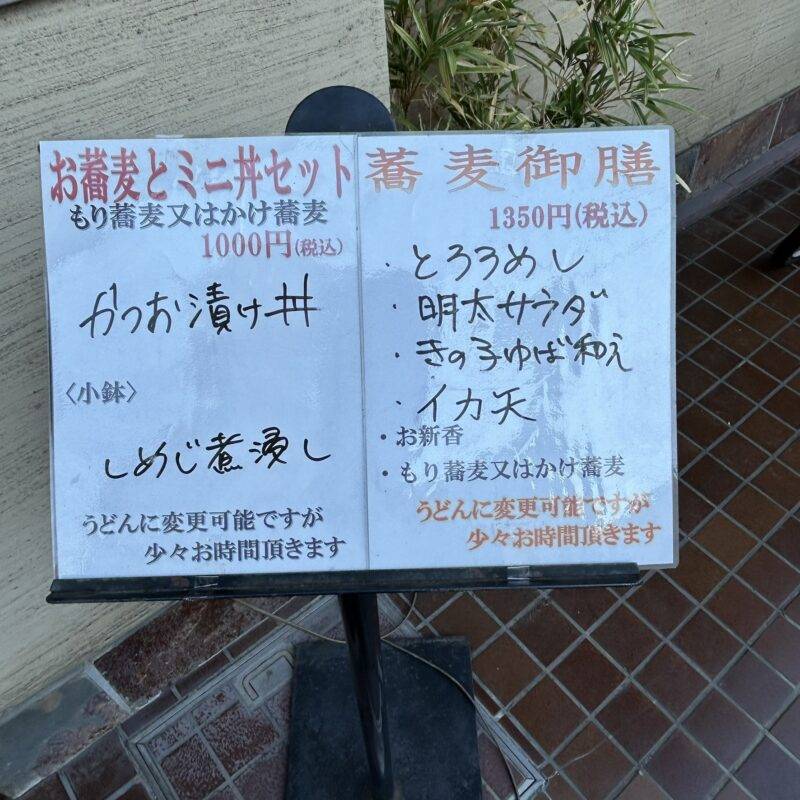 お蕎麦とミニ丼セット
もり蕎麦又はかけ蕎麦
1000円(税込)
かつお漬け丼
〈小鉢〉
しめじ煮浸し
うどんに変更可能ですが
少々お時間頂きます
蕎麦御膳
1350円(税込)
・とろろめし
・明太サラダ
・きの子ゆば和え
・イカ天
・お新香
・もり蕎麦又はかけ蕎麦
うどんに変更可能ですが
少々お時間頂きます